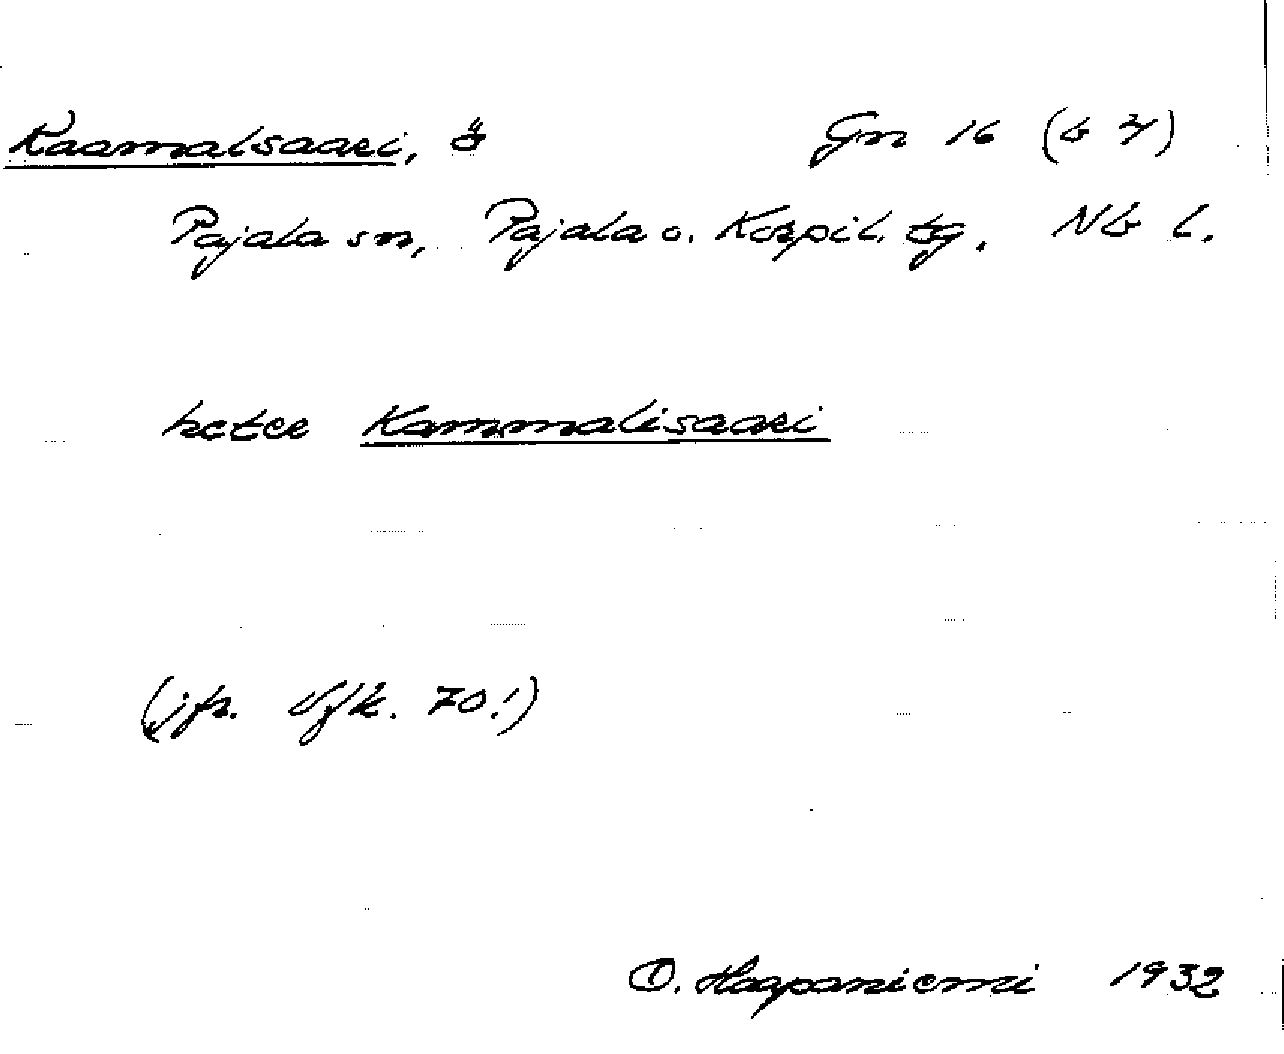 Kaamalsaari, ö Gn 16 (b 7)
Pajala sn, Pajala o. Korpil. tg. Nb l.
heter Kammalisaari
(jfr. Vfk. 70!)
O. Haapaniemi 1932